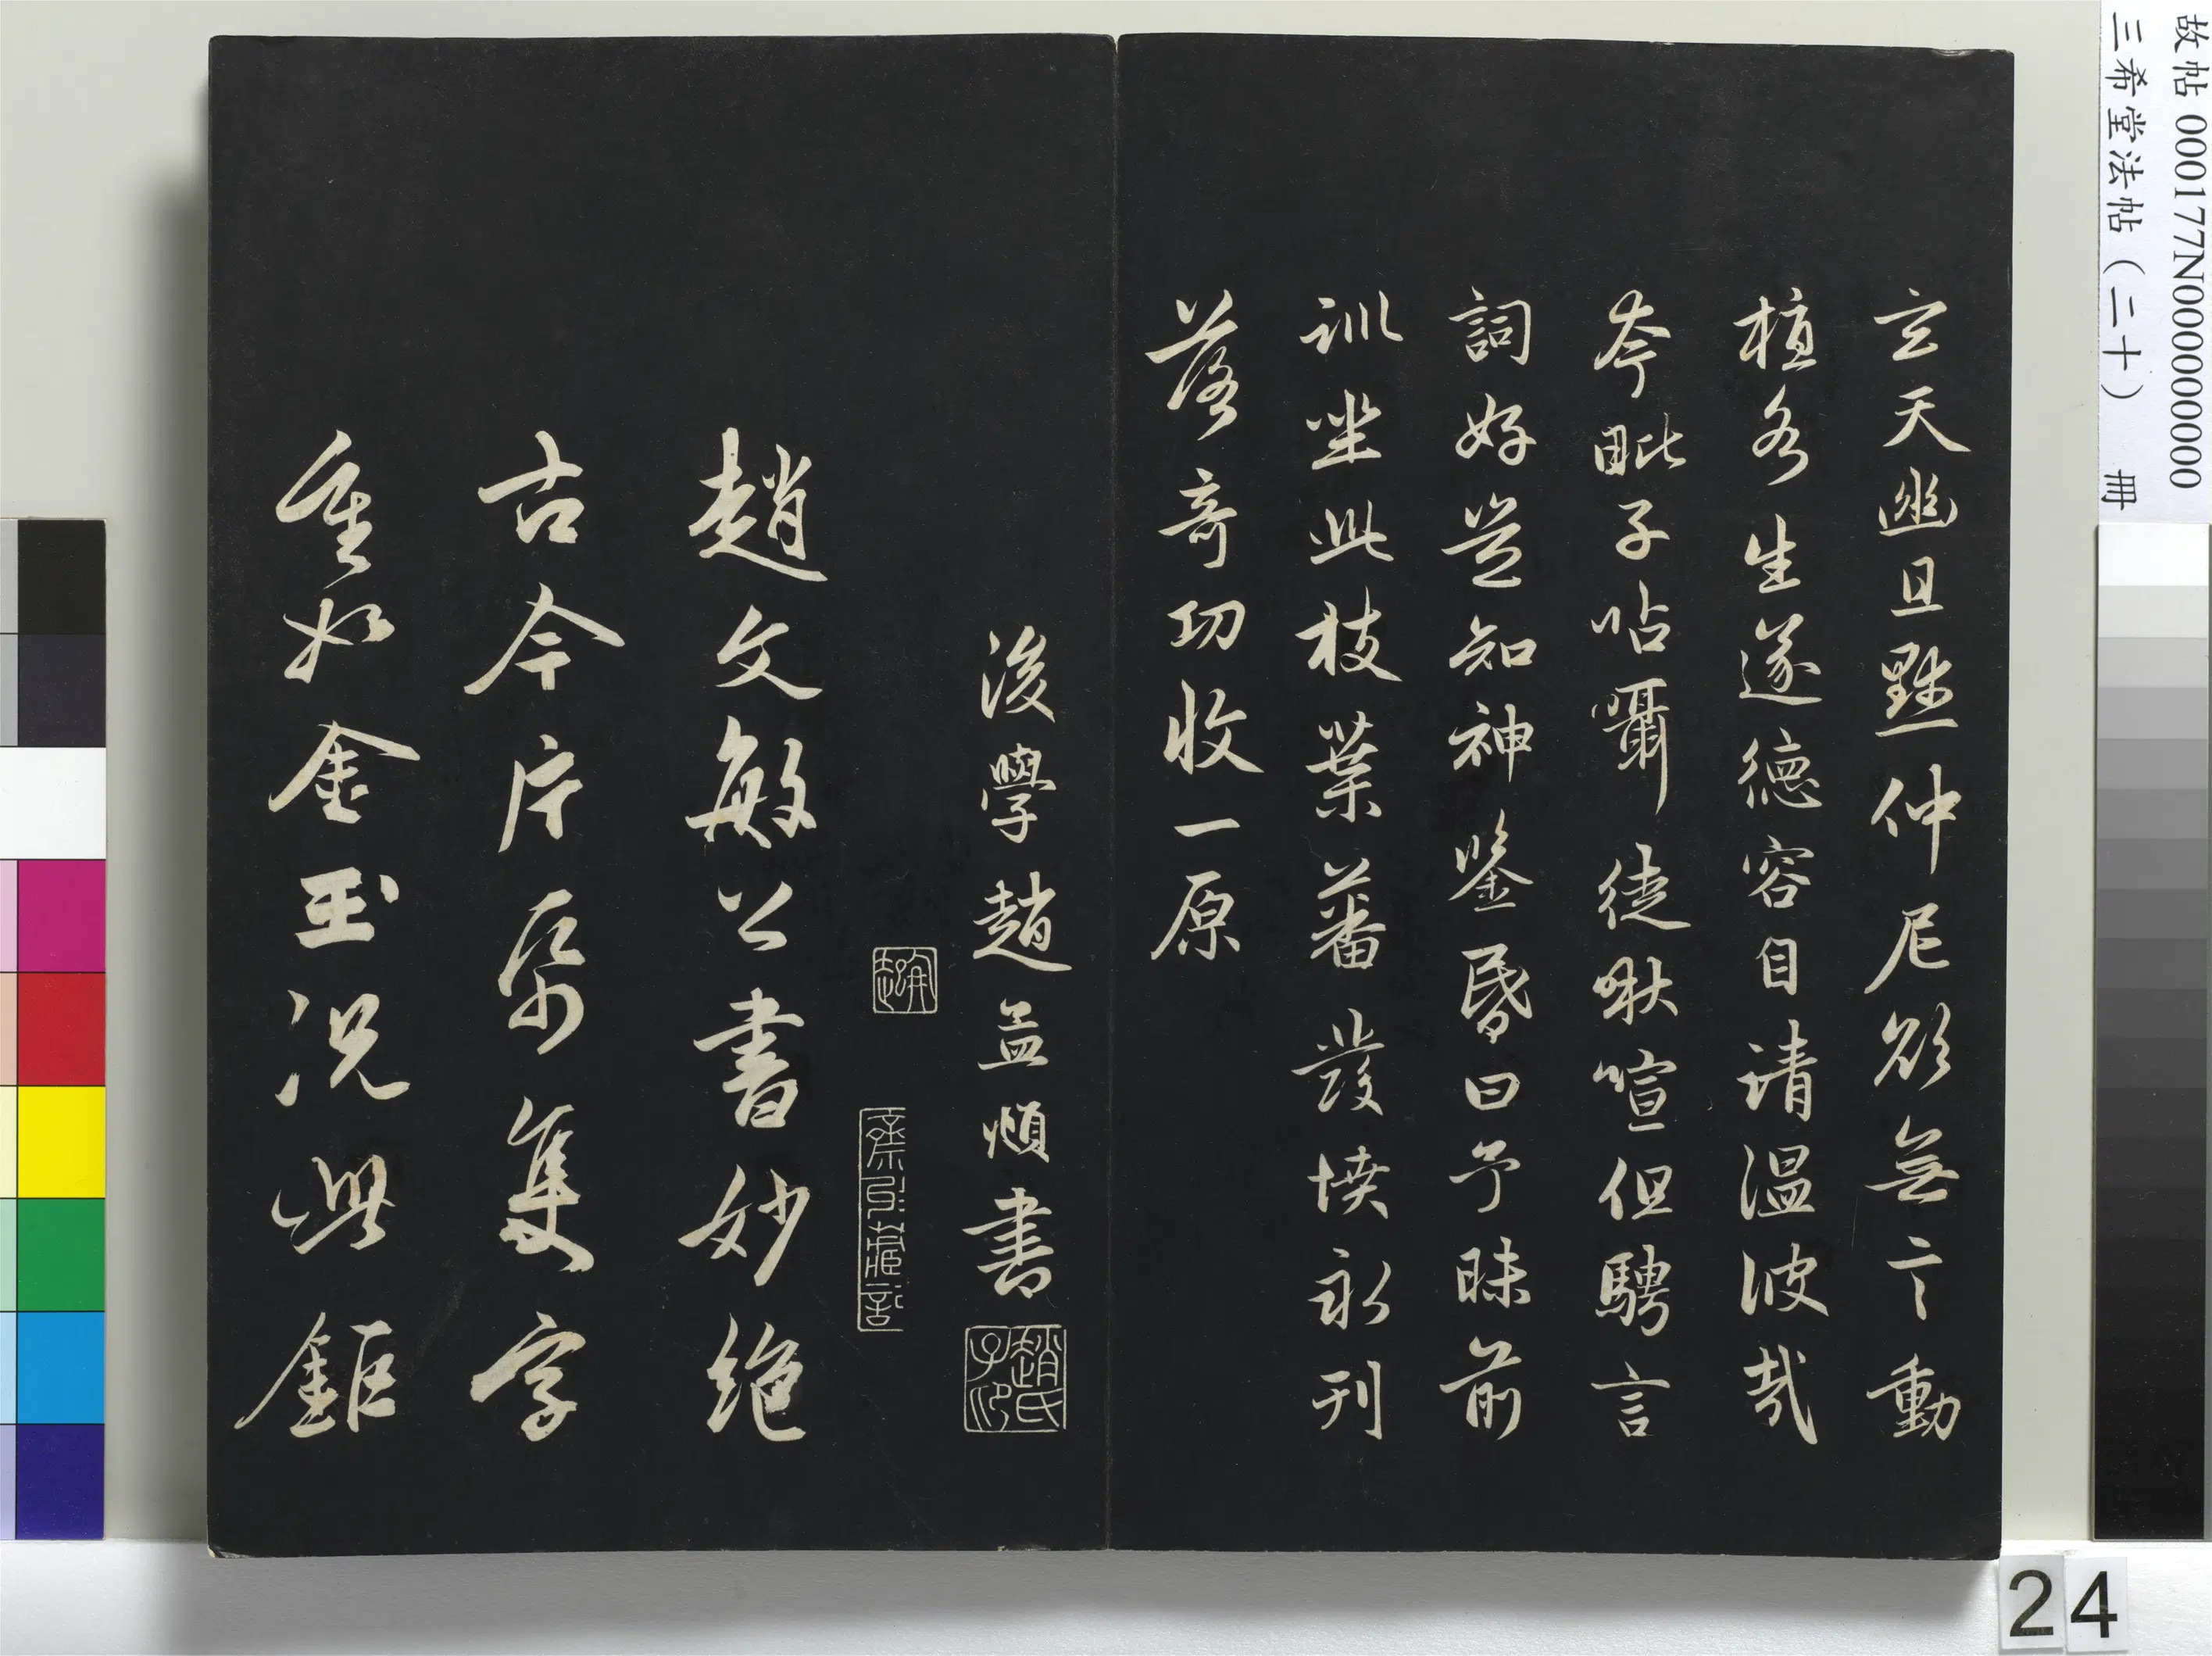 故帖 000177N000000000
三希堂法帖（二十） 冊
玄天幽且默仲尼欲無言動
植各生遂德容自清溫彼哉
夸毗子呫囁徒啾喧但騁言
詞好豈知神鑒昏曰予昧前
訓坐此枝葉蕃發憤永刊
落奇功收一原
後學趙孟頫書
趙氏子印
趙文敏公書妙絕
古今片紙隻字
重如金玉況此鉅
24